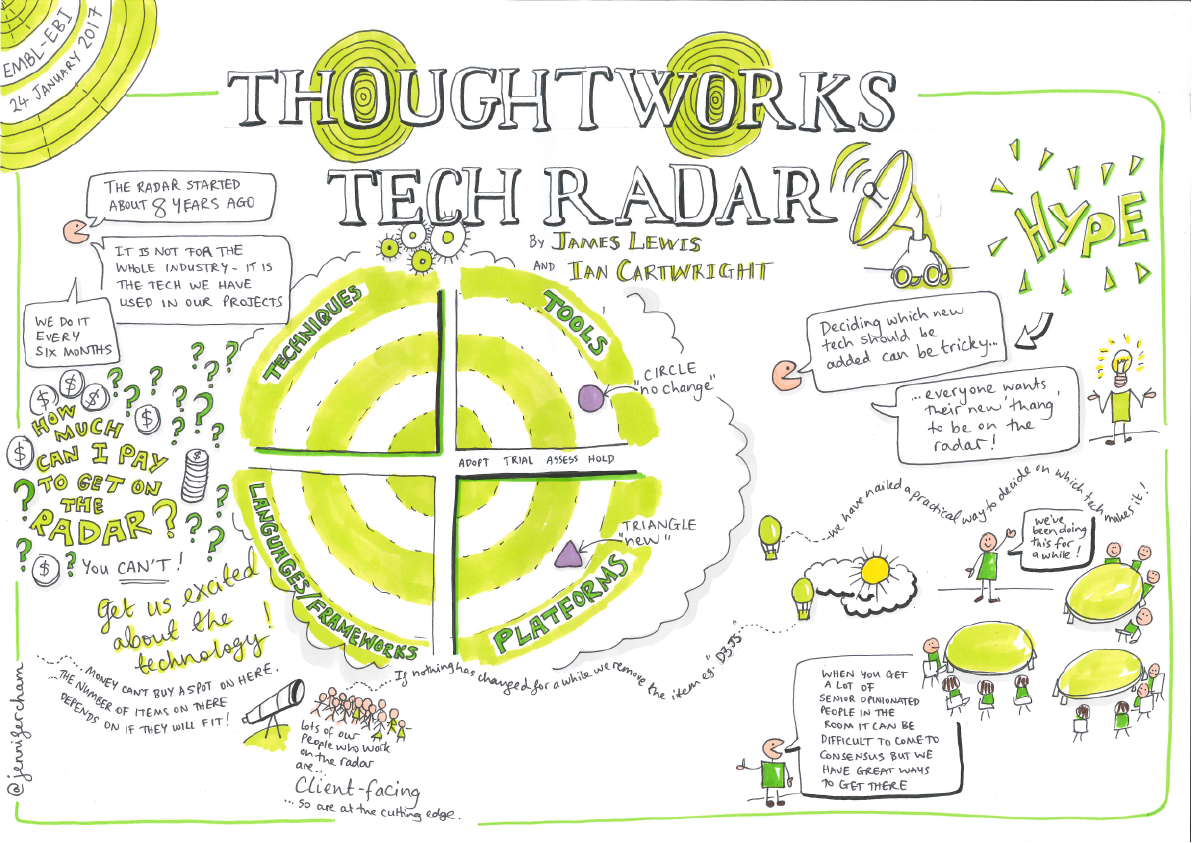 EMBL-EBI
24 JANUARY 2017
THOUGHTWORKS
TECH RADAR
BY JAMES LEWIS
AND IAN CARTWRIGHT
THE RADAR STARTED
ABOUT 8 YEARS AGO
IT IS NOT FOR THE
WHOLE INDUSTRY - IT IS
THE TECH WE HAVE
USED IN OUR PROJECTS
WE DO IT
EVERY
SIX MONTHS
HOW
MUCH
CAN I PAY
TO GET ON
THE
RADAR?
YOU CAN'T!
Get us excited
about the
technology!
MONEY CAN'T BUY A SPOT ON HERE.
...THE NUMBER OF ITEMS ON THERE
DEPENDS ON IF THEY WILL FIT!
@jennifercham
TECHNIQUES
TOOLS
CIRCLE
"no change"
ADOPT TRIAL ASSESS HOLD
TRIANGLE
"new"
LANGUAGES/FRAMEWORKS
PLATFORMS
If nothing has changed for a while we remove the item eg. "D3JS"
Lots of our
People who work
on the radar
are...
Client-facing
...so are at the cutting edge.
HYPE
Deciding which new
tech should be
added can be tricky...
...everyone wants
their new 'thang'
to be on the
radar!
we have nailed a practical way to decide on which tech makes it!
we've
been doing
this for
a while!
WHEN YOU GET
A LOT OF
SENIOR OPINIONATED
PEOPLE IN THE
ROOM IT CAN BE
DIFFICULT TO COME TO
CONSENSUS BUT WE
HAVE GREAT WAYS
TO GET THERE
$
$
$
$
$
$